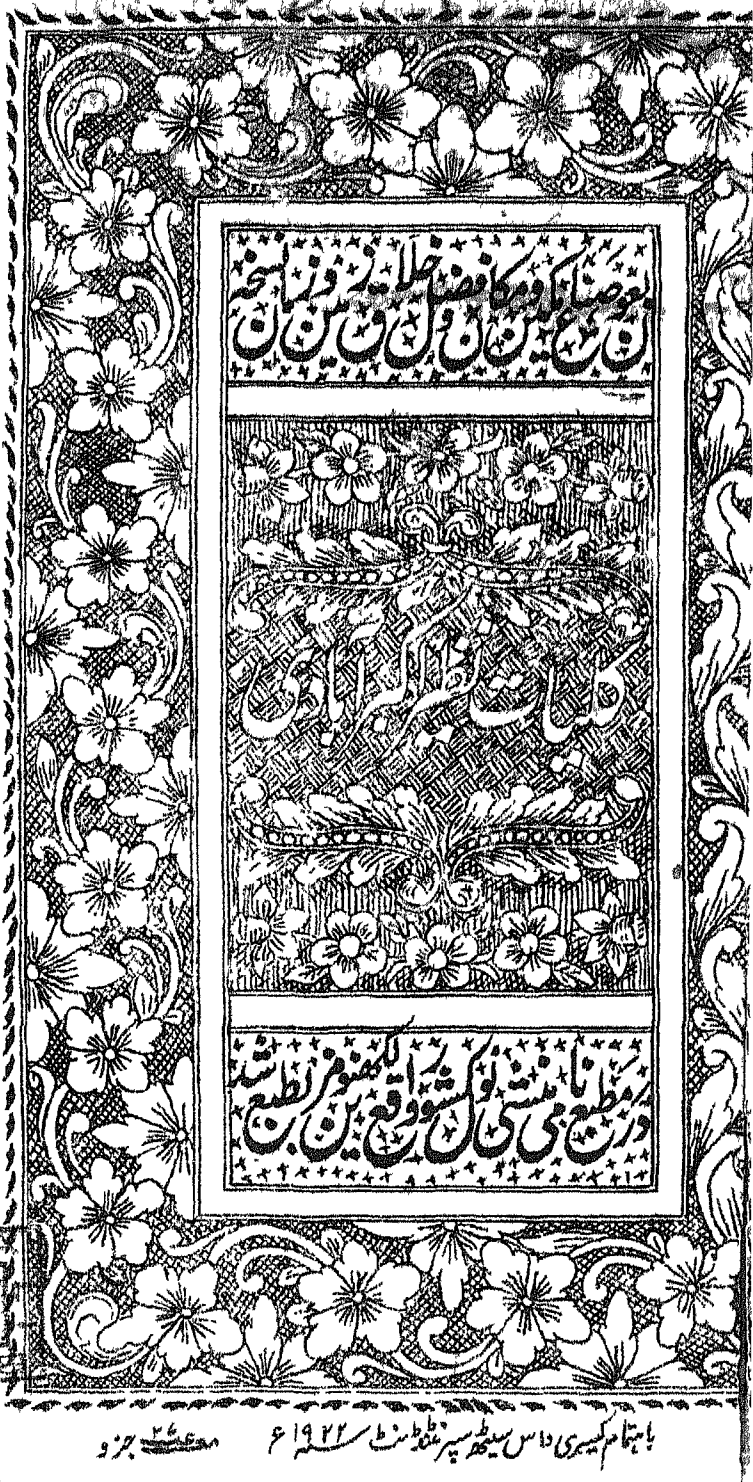 بعون صناع مکین و مکان و فضل خلاق زمین و زمان نسخہ
کلیات نظیر اکبر آبادی
در مطبع نامی منشی نول کشور واقع لکھنؤ مزین بطبع شد
باہتمام کیسری داس سیٹھ سپرنٹنڈنٹ سنہ ۱۹۲۲ء
جزو